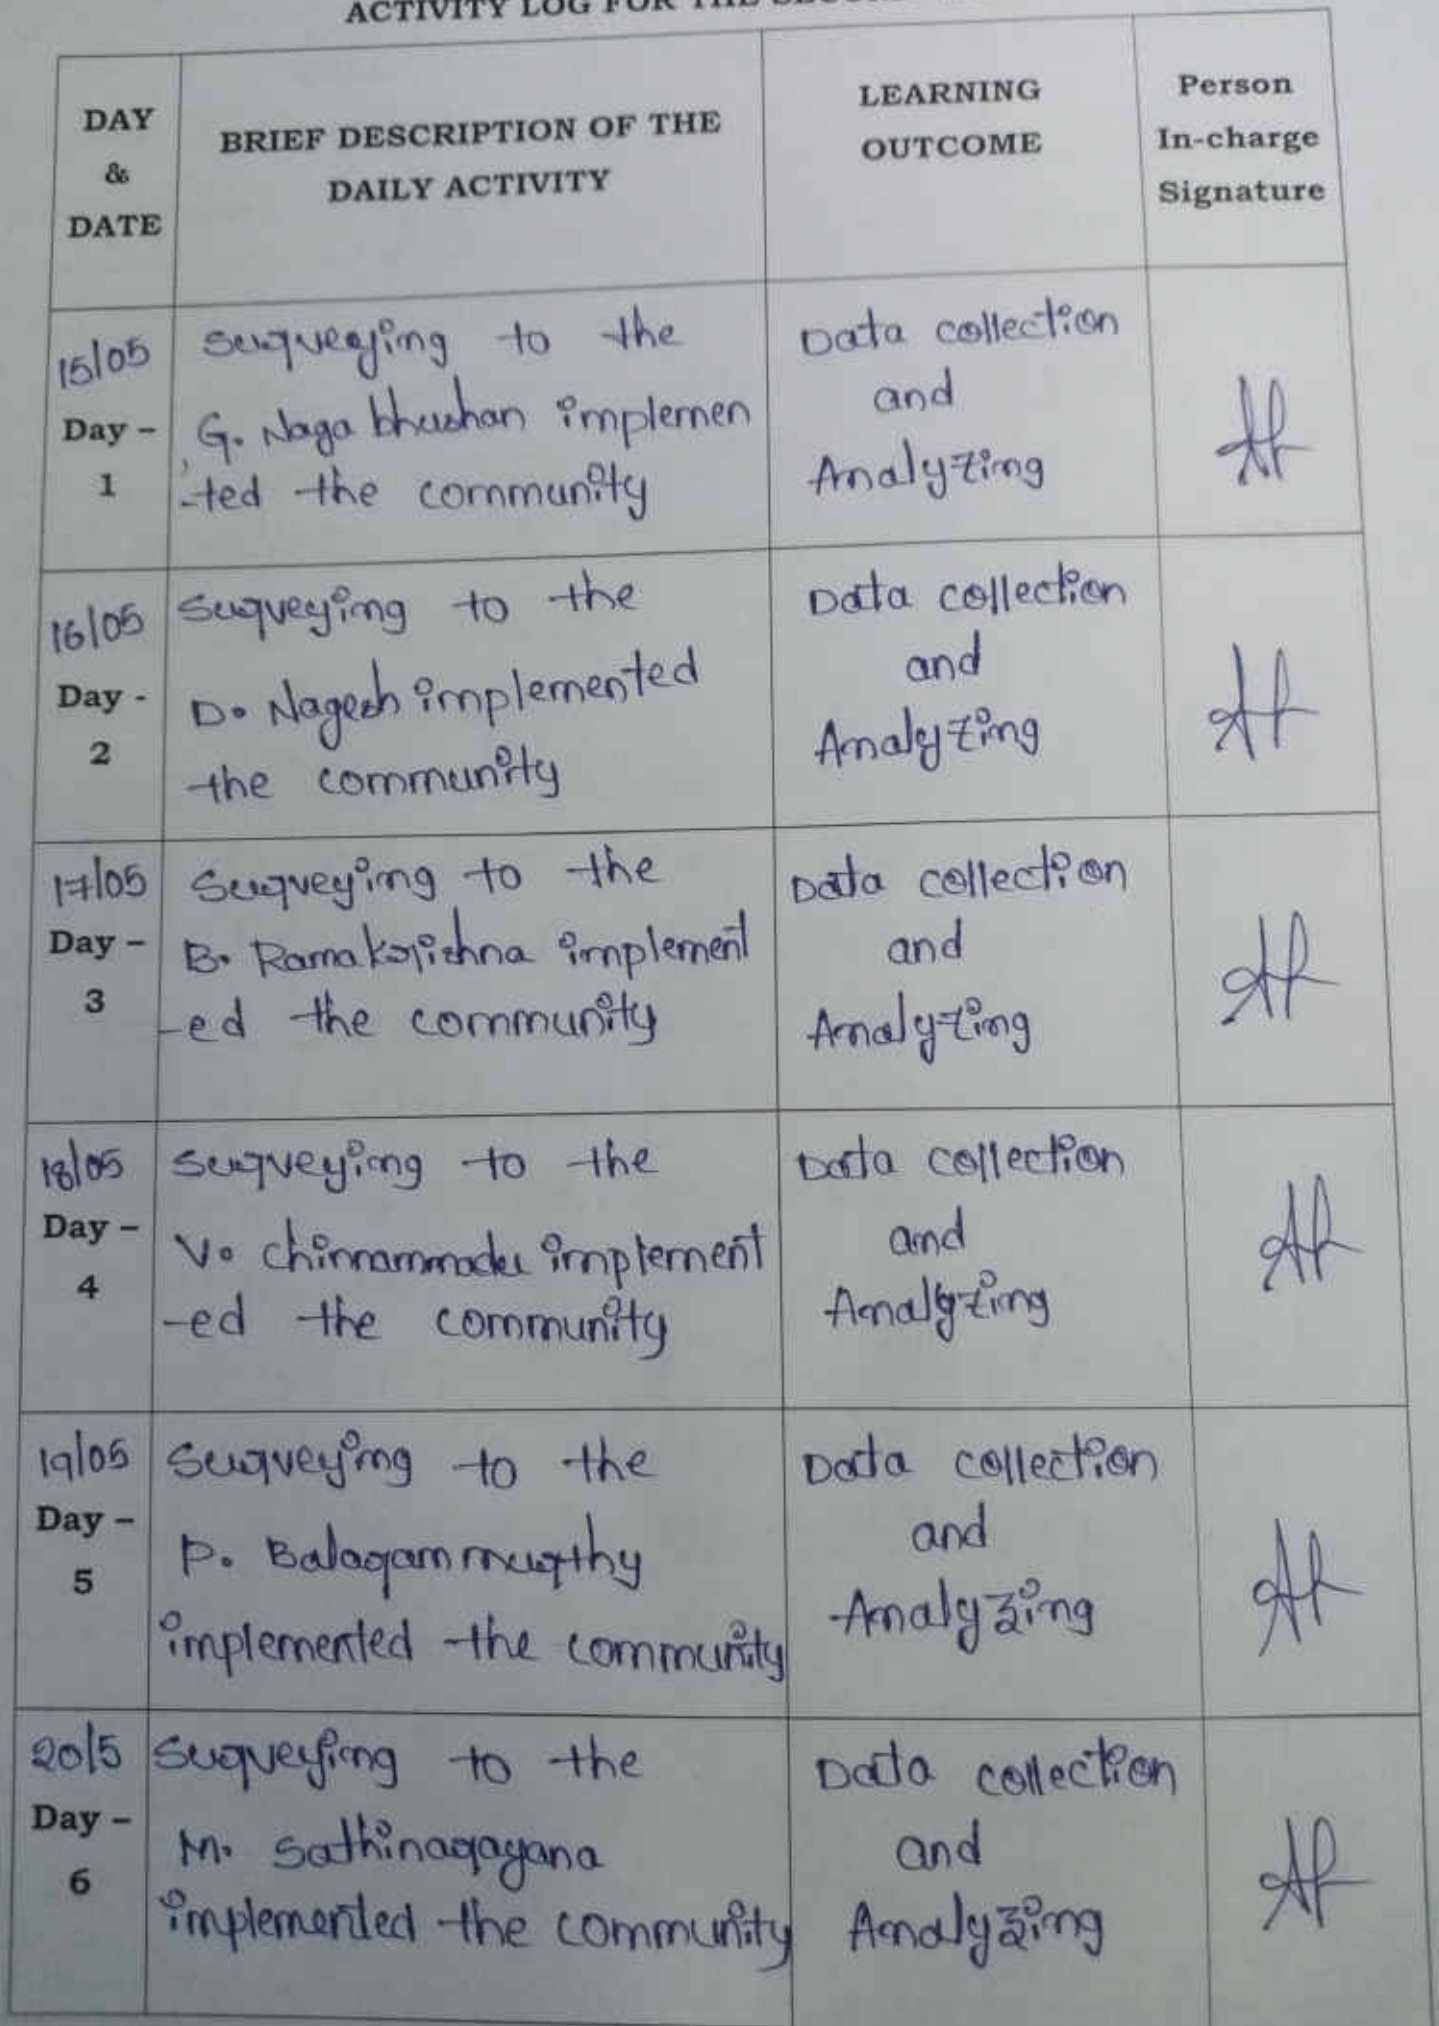 ACTIVITY LOG FOR THE
DAY
&
DATE
BRIEF DESCRIPTION OF THE
DAILY ACTIVITY
LEARNING
OUTCOME
Person
In-charge
Signature
15/05
Day –
1
Surveying to the
G. Naga bhushan implemen
-ted the community
Data collection
and
Analyzing
16/05
Day -
2
Surveying to the
D. Nagesh implemented
the community
Data collection
and
Analyzing
17/05
Day –
3
Surveying to the
B. Ramakrishna implement
-ed the community
Data collection
and
Analyzing
18/05
Day –
4
Surveying to the
V. chinnammadu implement
-ed the community
Data collection
and
Analyzing
19/05
Day –
5
Surveying to the
P. Balaram murthy
implemented the community
Data collection
and
Analyzing
20/5
Day –
6
Surveying to the
M. Sathinarayana
implemented the community
Data collection
and
Analyzing